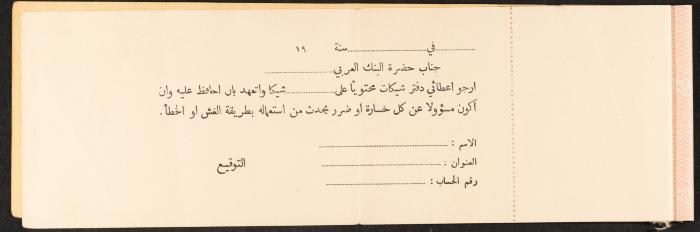 ................في........................سنة ١٩
جناب حضرة البنك العربي........................
ارجو اعطائي دفتر شيكات محتويًا على................شيكا واتعهد بان احافظ عليه وان
أكون مسؤولا عن كل خسارة او ضرر يحدث من استعماله بطريقة الغش او الخطأ.
الاسم : ................................
العنوان : ................................ التوقيع
رقم الحساب : ................................